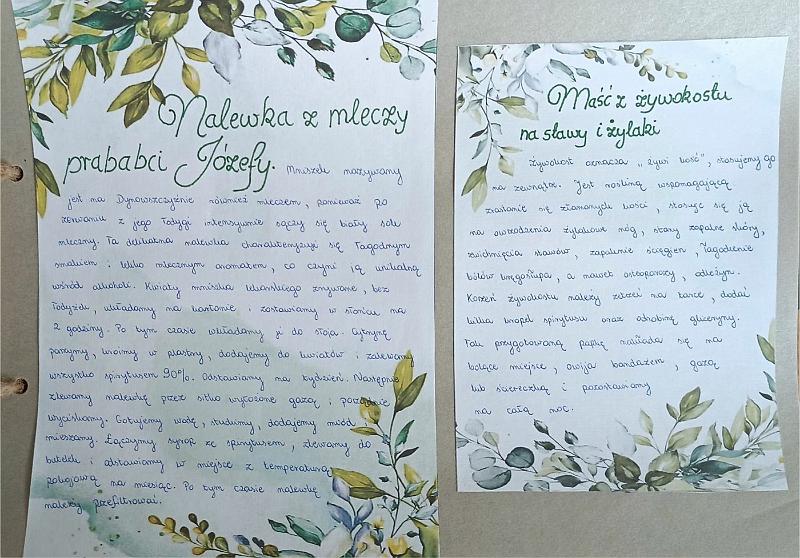 Nalewka z mleczy
prababci Józefy.
Mniszek nazywany
jest na Dynowszczyźnie również mleczem, ponieważ po
zerwaniu z jego łodygi intensywnie sączy się biały sok
mleczny. Ta delikatna nalewka charakteryzuje się łagodnym
smakiem i lekko mlecznym aromatem, co czyni ją unikalną
wśród alkoholi. Kwiaty mniszka lekarskiego zrywane, bez
łodyżek, układamy na kartonie i zostawiamy w słońcu na
2 godziny. Po tym czasie wkładamy je do słoja. Cytrynę
parzymy, kroimy w plastry, dodajemy do kwiatów i zalewamy
wszystko spirytusem 90%. Odstawiamy na tydzień. Następnie
zlewamy nalewkę przez sitko wyłożone gazą i porządnie
wyciskamy. Gotujemy wodę, studzimy, dodajemy miód i
mieszamy. Łączymy syrop ze spirytusem, zlewamy do
butelek i odstawiamy w miejsce z temperaturą
pokojową na miesiąc. Po tym czasie nalewkę
należy przefiltrować.
Maść z żywokostu
na stawy i żylaki
Żywokost oznacza „żywi kość", stosujemy go
na zewnątrz. Jest rośliną wspomagającą
zrastanie się złamanych kości, stosuje się ją
na owrzodzenia żylakowe nóg, stany zapalne skóry,
zwichnięcia stawów, zapalenie ścięgien, łagodzenie
bólów kręgosłupa, a nawet osteoporozy, odleżyn.
Korzeń żywokostu należy zetrzeć na tarce, dodać
kilka kropel spirytusu oraz odrobinę gliceryny.
Tak przygotowaną papkę nakłada się na
bolące miejsce, owija bandażem, gazą
lub ściereczką i pozostawiamy
na całą noc.